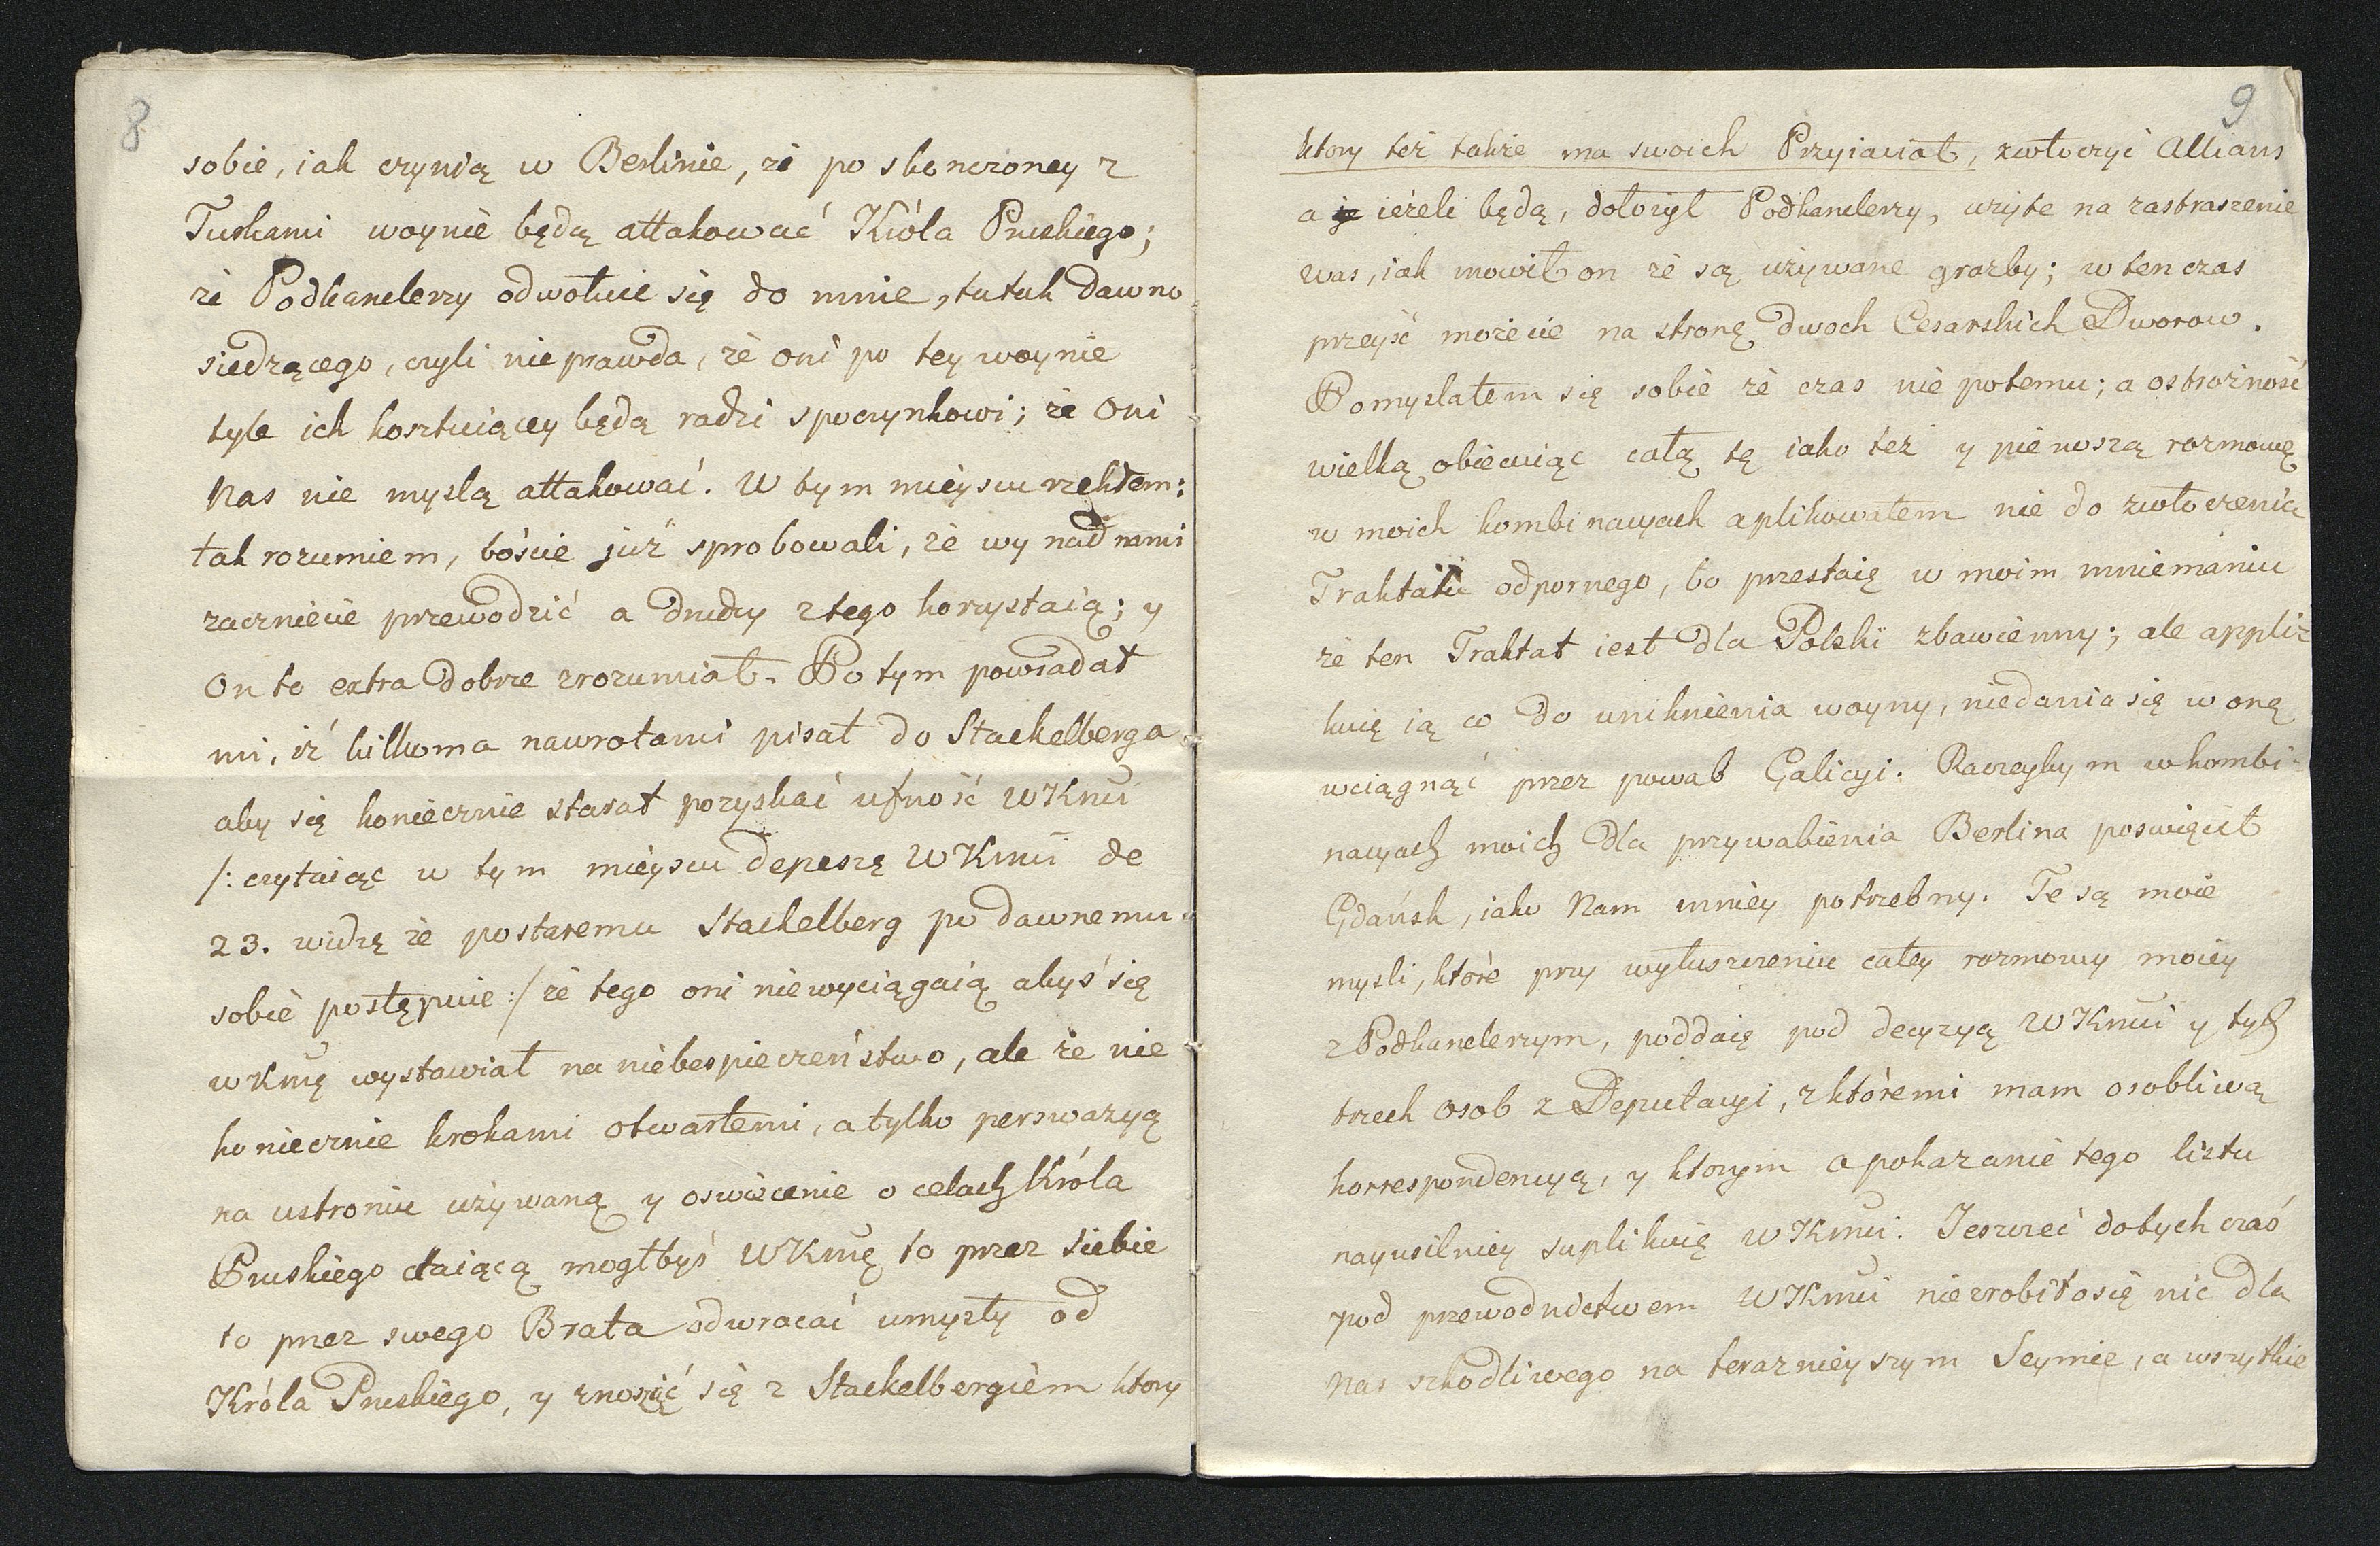 8
sobie, iak czynią w Berlinie, że po skonczoney z
Turkami woynie będą attakować Króla Pruskiego;
że Podkanclerzy odwołuie się do mnie, tutuk dawno
siedzącego, czyli nieprawda, że oni po tey woynie
tyle ich kosztuiącey będą radzi spoczynkowi; że Oni
Nas nie myslą attakować. W tym mieyscu rzekłem:
tak rozumiem, bóście już sprobowali, że wy nad nami
zaczniecie przewodzić a drudzy z tego korzystaią; y
On to extra dobrze zrozumiał. Po tym powiadał
mi, iż kilkoma nawrotami pisał do Stackelberga
aby się koniecznie starał pozyskać ufność WKmci
/: czytaiąc w tym mieyscu depeszę WKmci de
23. widzę że postaremu Stackelberg po dawnemu
sobie postępuie :/ że tego oni niewyciągaią abyś się
WKmć wystawiał na niebespieczeństwo, ale że nie
koniecznie krokami otwartemi, a tylko perswazyą
na ustroniu używaną y oswiecenie o celach Króla
Pruskiego daiącą mogłbyś WKmć to przez siebie
to przez swego Brata odwracać umysły od
Króla Pruskiego, y znosić się z Stackelbergiem ktory
9
ktory też także ma swoich Przyiacioł, zwłoczyć Allians
a ieżeli będą, dołożył Podkanclerzy, użyte na zastraszenie
was, iak mowił on że są używane grozby; w ten czas
przeyść możecie na stronę dwoch Cesarskich Dworow.
Pomyslałem się sobie że czas nie potemu; a ostrożność
wielką obiecuiąc całą tę iako też y pierwszą rozmowę
w moich kombinacyach aplikowałem nie do zwłoczenia
Traktatu odpornego, bo przestaię w moim mniemaniu
że ten Traktat iest dla Polski zbawienny; ale appli-
kuię ią co do uniknienia woyny, niedania się w onę
wciągnąć przez powab Galicyi. Raczeybym w kombi-
nacyach moich dla przywabienia Berlina poswięcił
Gdańsk, iako Nam mniey potrzebny. Te są moie
mysli, które przy wyłuszczeniu całey rozmowy moiey
z Podkanclerzym, poddaię pod decyzyą WKmci y tych
trzech osob z Deputacyi, z któremi mam osobliwą
korrespondencyą, y ktorym o pokazanie tego listu
nayusilniey suplikuię WKmci. Ieszczeć dotych czas
pod przewodnictwem WKmci niezrobiło się nic dla
Nas szkodliwego na terazniey szym Seymie, a wszytkie